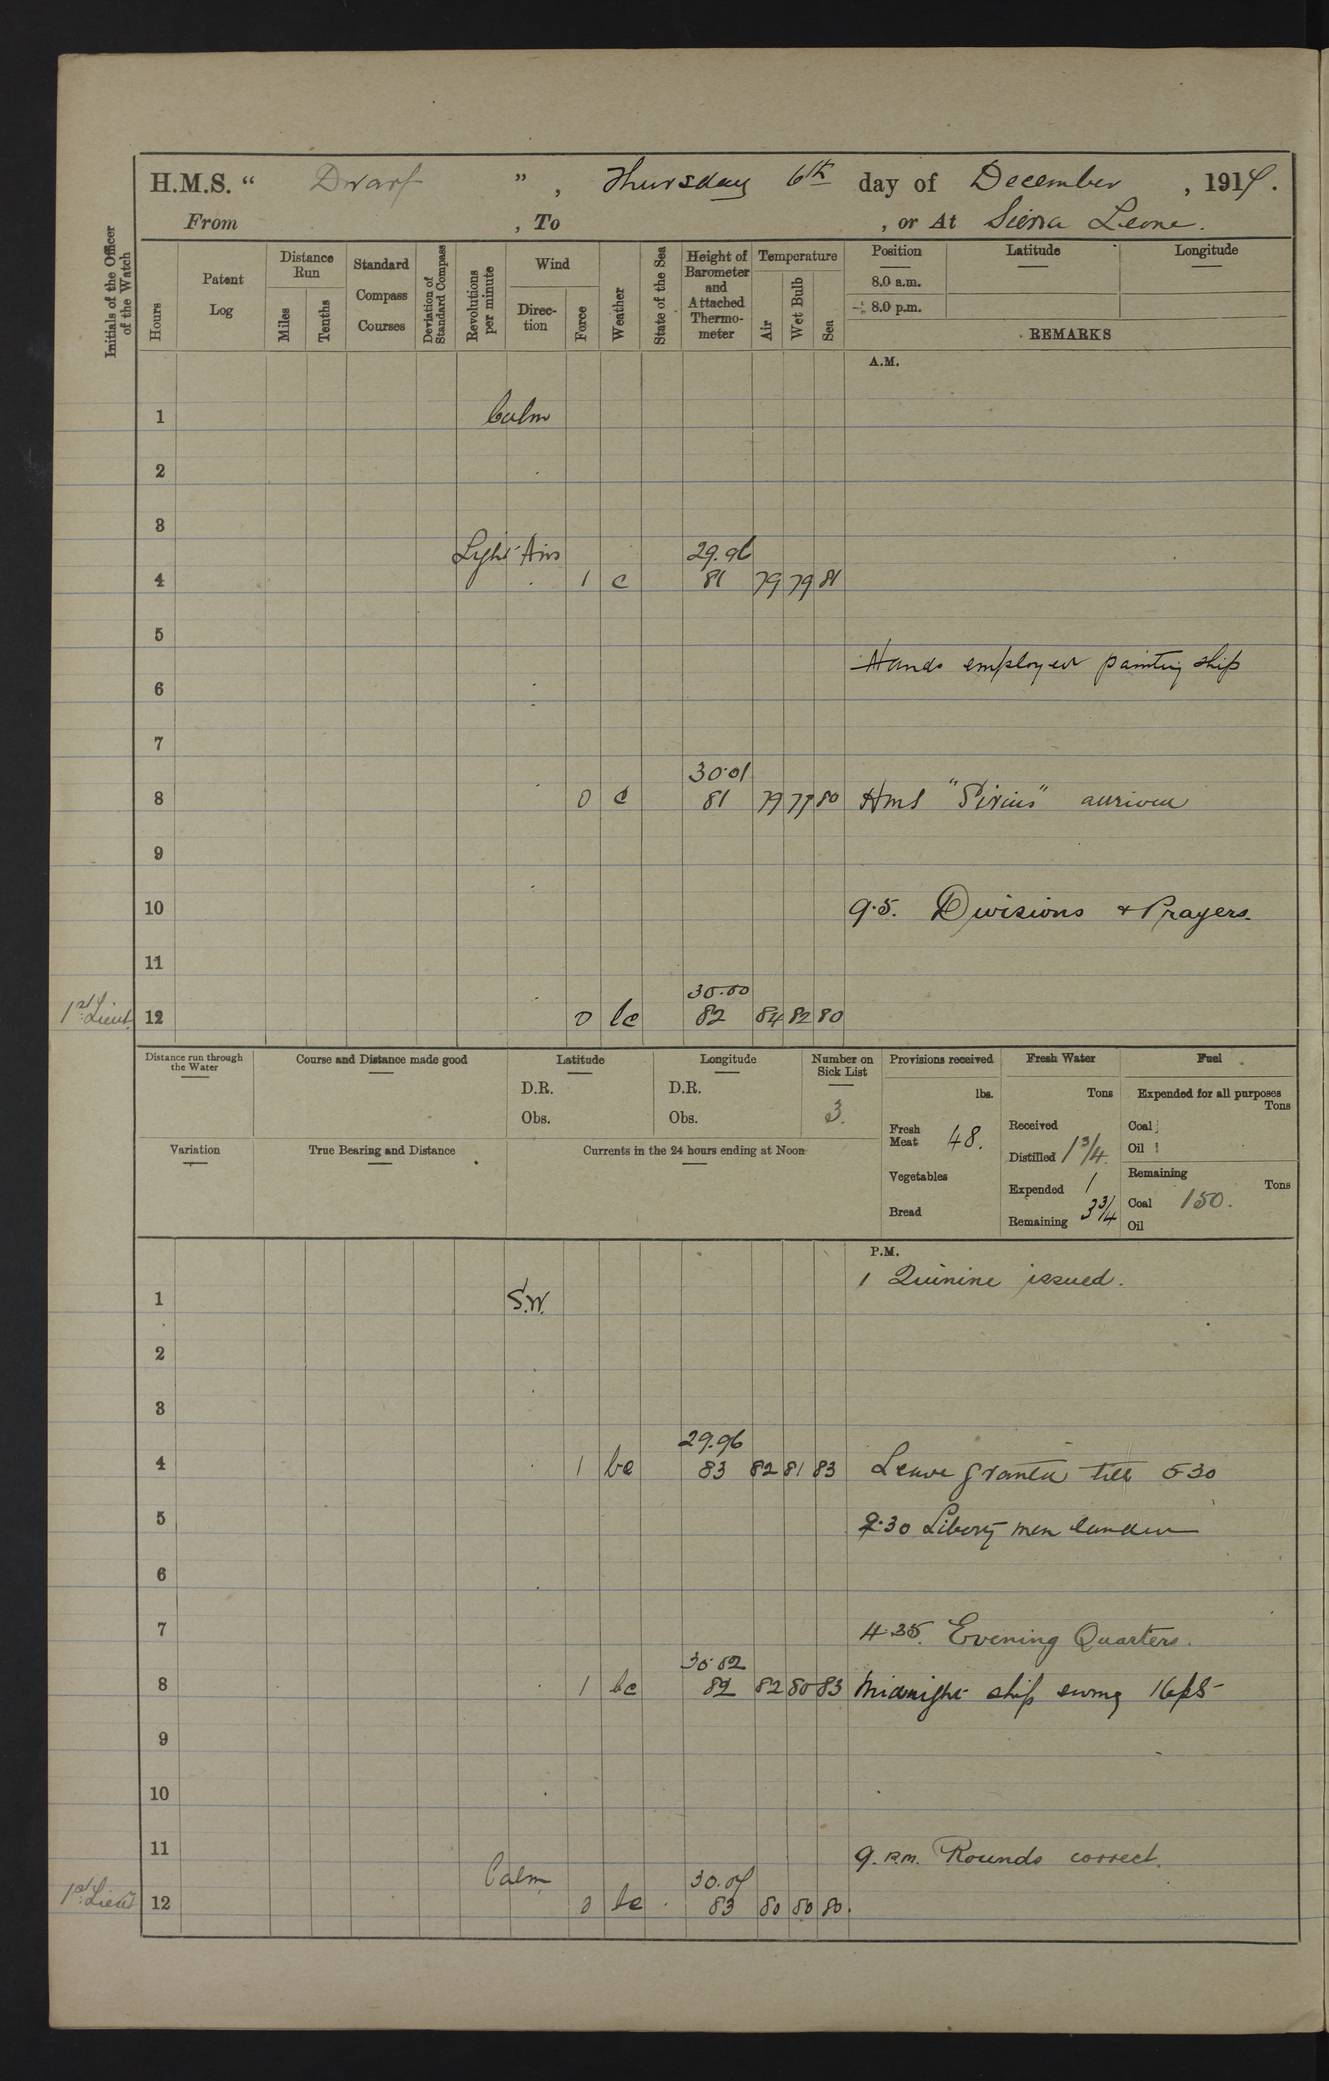 H.M.S. “ Dwarf ” , Thursday 6th day of December , 1917.
From , To , or At Sierra Leone.
Initials of the Officer of the Watch
Hours
Patent Log
Distance Run
Miles
Tenths
Standard Compass Courses
Deviation of Standard Compass
Revolutions per minute
Wind
Direction
Force
Weather
State of the Sea
Height of Barometer and Attached Thermometer
Temperature
Air
Wet Bulb
Sea
Position
8.0 a.m.
8.0 p.m.
Latitude
Longitude
REMARKS
A.M.
1 Calm
2
3
Light Airs 29.96
4 1 c 81 79 79 81
5
Hands employed painting ship
6
7
30.01
8 0 c 81 79 77 80 HMS "Sirius" arrived
9
10 9.5. Divisions & Prayers.
11
30.00
1st Lieut. 12 0 bc 82 84 82 80
Distance run through the Water
Course and Distance made good
Latitude
D.R.
Obs.
Longitude
D.R.
Obs.
Number on Sick List
3.
Provisions received
lbs.
Fresh Meat 48.
Vegetables
Bread
Fresh Water
Tons
Received
Distilled 1 3/4.
Expended 1
Remaining 3 3/4
Fuel
Expended for all purposes
Tons
Coal
Oil
Remaining
Tons
Coal 150.
Oil
Variation
True Bearing and Distance
Currents in the 24 hours ending at Noon
P.M.
1 Quinine issued.
1 S.W.
2
3
29.96
4 1 bc 83 82 81 83 Leave granted till 5 30
5 2.30 Liberty men landed
6
7 4.35. Evening Quarters.
30.02
8 1 bc 82 82 80 83 Midnight ship swung 16 pts
9
10
11 9. P.M. Rounds correct.
Calm 30.04
1st Lieut 12 0 bc 83 80 80 80.